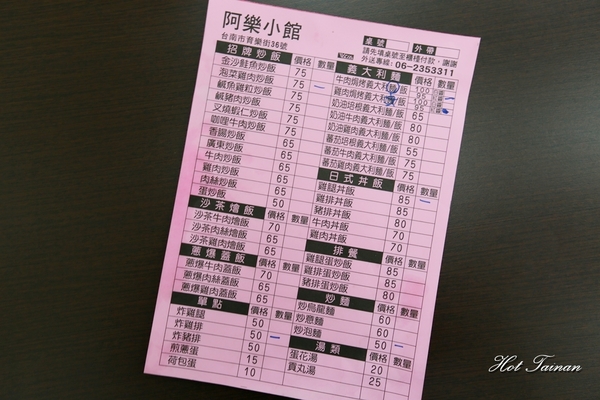 阿樂小館
台南市育樂街36號
桌號 外帶
請先填桌號至櫃檯付款，謝謝
外送專線：06-2353311
招牌炒飯 價格 數量
金沙鮭魚炒飯 75
泡菜雞肉炒飯 75
鹹魚雞粒炒飯 75
鹹豬肉炒飯 75
叉燒蝦仁炒飯 75
咖哩牛肉炒飯 75
香腸炒飯 65
廣東炒飯 65
牛肉炒飯 65
雞肉炒飯 65
肉絲炒飯 55
蛋炒飯 50
沙茶燴飯 價格 數量
沙茶牛肉燴飯 70
沙茶肉絲燴飯 65
沙茶雞肉燴飯 65
蔥爆蓋飯 價格 數量
蔥爆牛肉蓋飯 70
蔥爆肉絲蓋飯 65
蔥爆雞肉蓋飯 65
單點 價格 數量
炸雞腿 50
炸雞排 50
炸豬排 50
煎蔥蛋 15
荷包蛋 10
義大利麵 價格 數量
牛肉焗烤義大利麵/飯 100
雞肉焗烤義大利麵/飯 100
奶油培根義大利麵/飯 65
奶油牛肉義大利麵/飯 80
奶油雞肉義大利麵/飯 80
番茄培根義大利麵/飯 55
番茄牛肉義大利麵/飯 75
番茄雞肉義大利麵/飯 75
日式丼飯 價格 數量
雞腿丼飯 85
雞排丼飯 85
豬排丼飯 80
牛肉丼飯 70
雞肉丼飯 70
排餐 價格 數量
雞腿蛋炒飯 85
雞排蛋炒飯 85
豬排蛋炒飯 80
炒麵 價格 數量
炒烏龍麵 60
炒意麵 60
炒泡麵 50
湯類 價格 數量
蛋花湯 20
貢丸湯 25
Hot Tainan